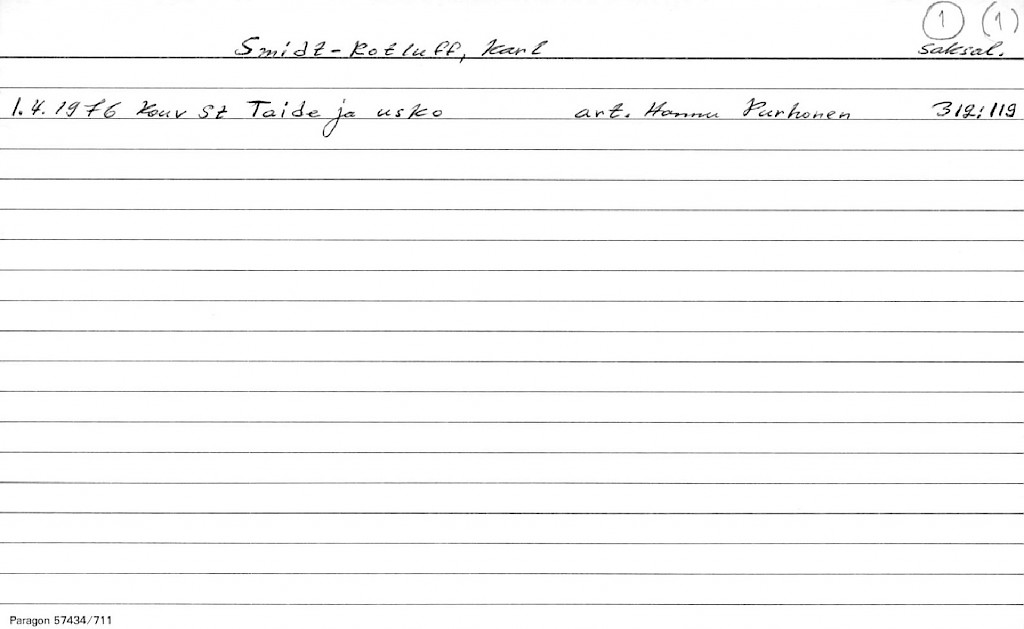 1 (1)
Smidt-Rotluff, Karl saksal.
1.4.1976 Kouv St Taide ja usko art. Hannu Purhonen 312:119
Paragon 57434/711